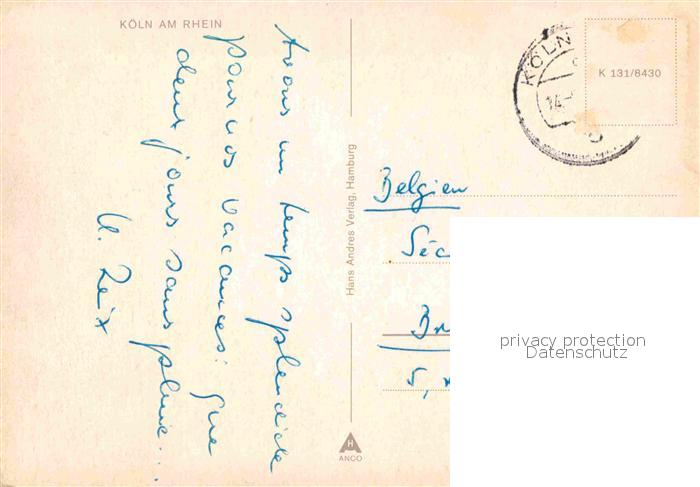 KÖLN AM RHEIN
Avons un temps splendide
pour nos vacances: que
deux jours sans pluie...
Hans Andres Verlag, Hamburg
ANCO
KÖLN
14.
K 131/8430
Belgien
5,
privacy protection
Datenschutz